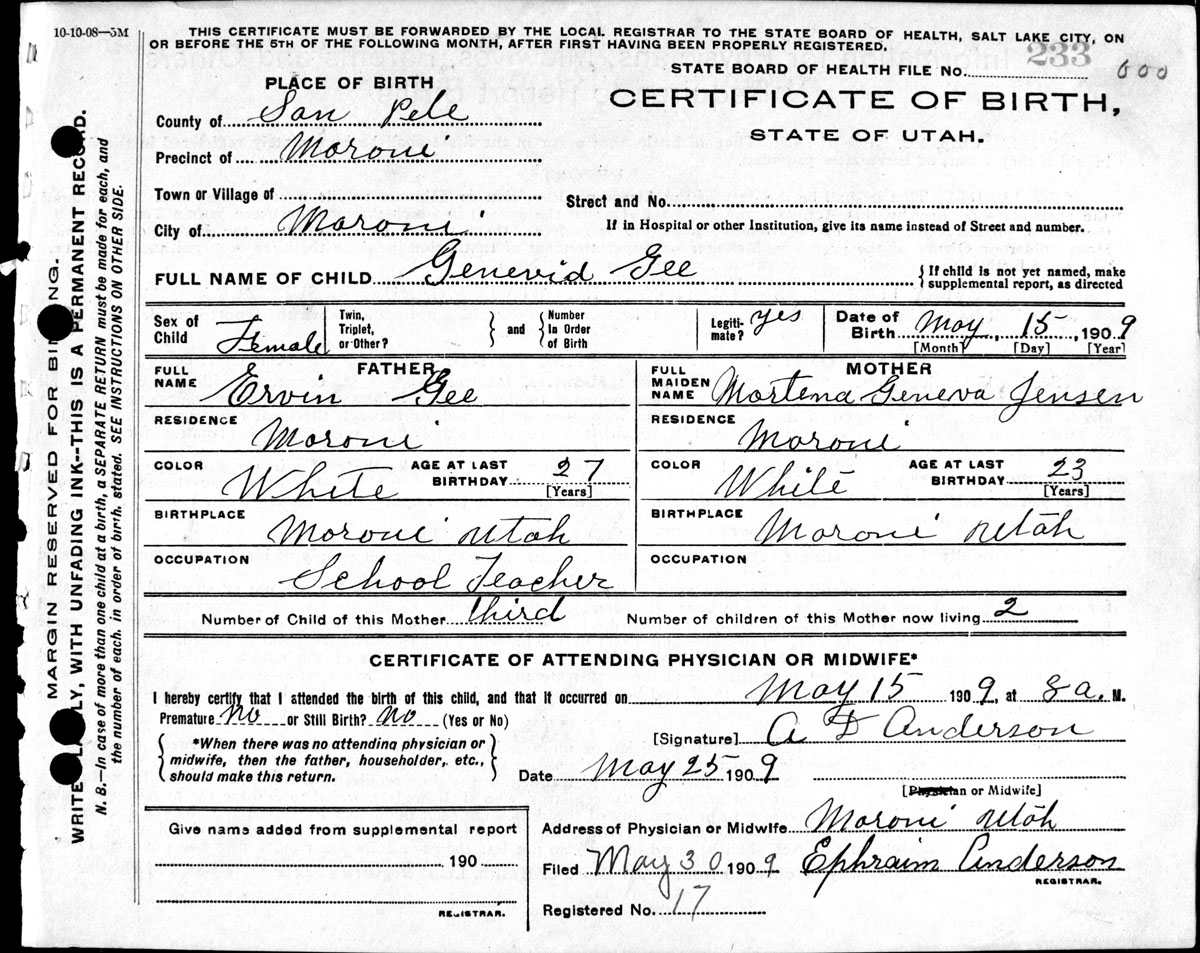 10-10-08—5M
THIS CERTIFICATE MUST BE FORWARDED BY THE LOCAL REGISTRAR TO THE STATE BOARD OF HEALTH, SALT LAKE CITY, ON
OR BEFORE THE 5TH OF THE FOLLOWING MONTH, AFTER FIRST HAVING BEEN PROPERLY REGISTERED.
PLACE OF BIRTH
County of San Pete
Precinct of Moroni
Town or Village of
City of Moroni
STATE BOARD OF HEALTH FILE NO. 233 000
CERTIFICATE OF BIRTH,
STATE OF UTAH.
Street and No.
If in Hospital or other Institution, give its name instead of Street and number.
FULL NAME OF CHILD Genevid Gee
{ If child is not yet named, make
supplemental report, as directed
Sex of Child Female
Twin, Triplet, or Other?
and
Number In Order of Birth
Legiti-mate? yes
Date of Birth May 15, 1909
[Month] [Day] [Year]
FATHER
FULL NAME Ervin Gee
RESIDENCE Moroni
COLOR White
AGE AT LAST BIRTHDAY 27
[Years]
BIRTHPLACE Moroni Utah
OCCUPATION School Teacher
MOTHER
FULL MAIDEN NAME Martena Geneva Jensen
RESIDENCE Moroni
COLOR White
AGE AT LAST BIRTHDAY 23
[Years]
BIRTHPLACE Moroni Utah
OCCUPATION
Number of Child of this Mother third
Number of children of this Mother now living 2
CERTIFICATE OF ATTENDING PHYSICIAN OR MIDWIFE*
I hereby certify that I attended the birth of this child, and that it occurred on May 15 1909, at 8 a. M.
Premature No or Still Birth? No (Yes or No)
{ *When there was no attending physician or
midwife, then the father, householder, etc.,
should make this return. }
[Signature] A D Anderson
Date May 25 1909
[Physician or Midwife]
Give name added from supplemental report
190
REGISTRAR.
Address of Physician or Midwife Moroni Utah
Filed May 30 1909 Ephraim Anderson
REGISTRAR.
Registered No. 17
MARGIN RESERVED FOR BINDING.
WRITE PLAINLY, WITH UNFADING INK--THIS IS A PERMANENT RECORD.
N. B.—In case of more than one child at a birth, a SEPARATE RETURN must be made for each, and
the number of each, in order of birth, stated. SEE INSTRUCTIONS ON OTHER SIDE.